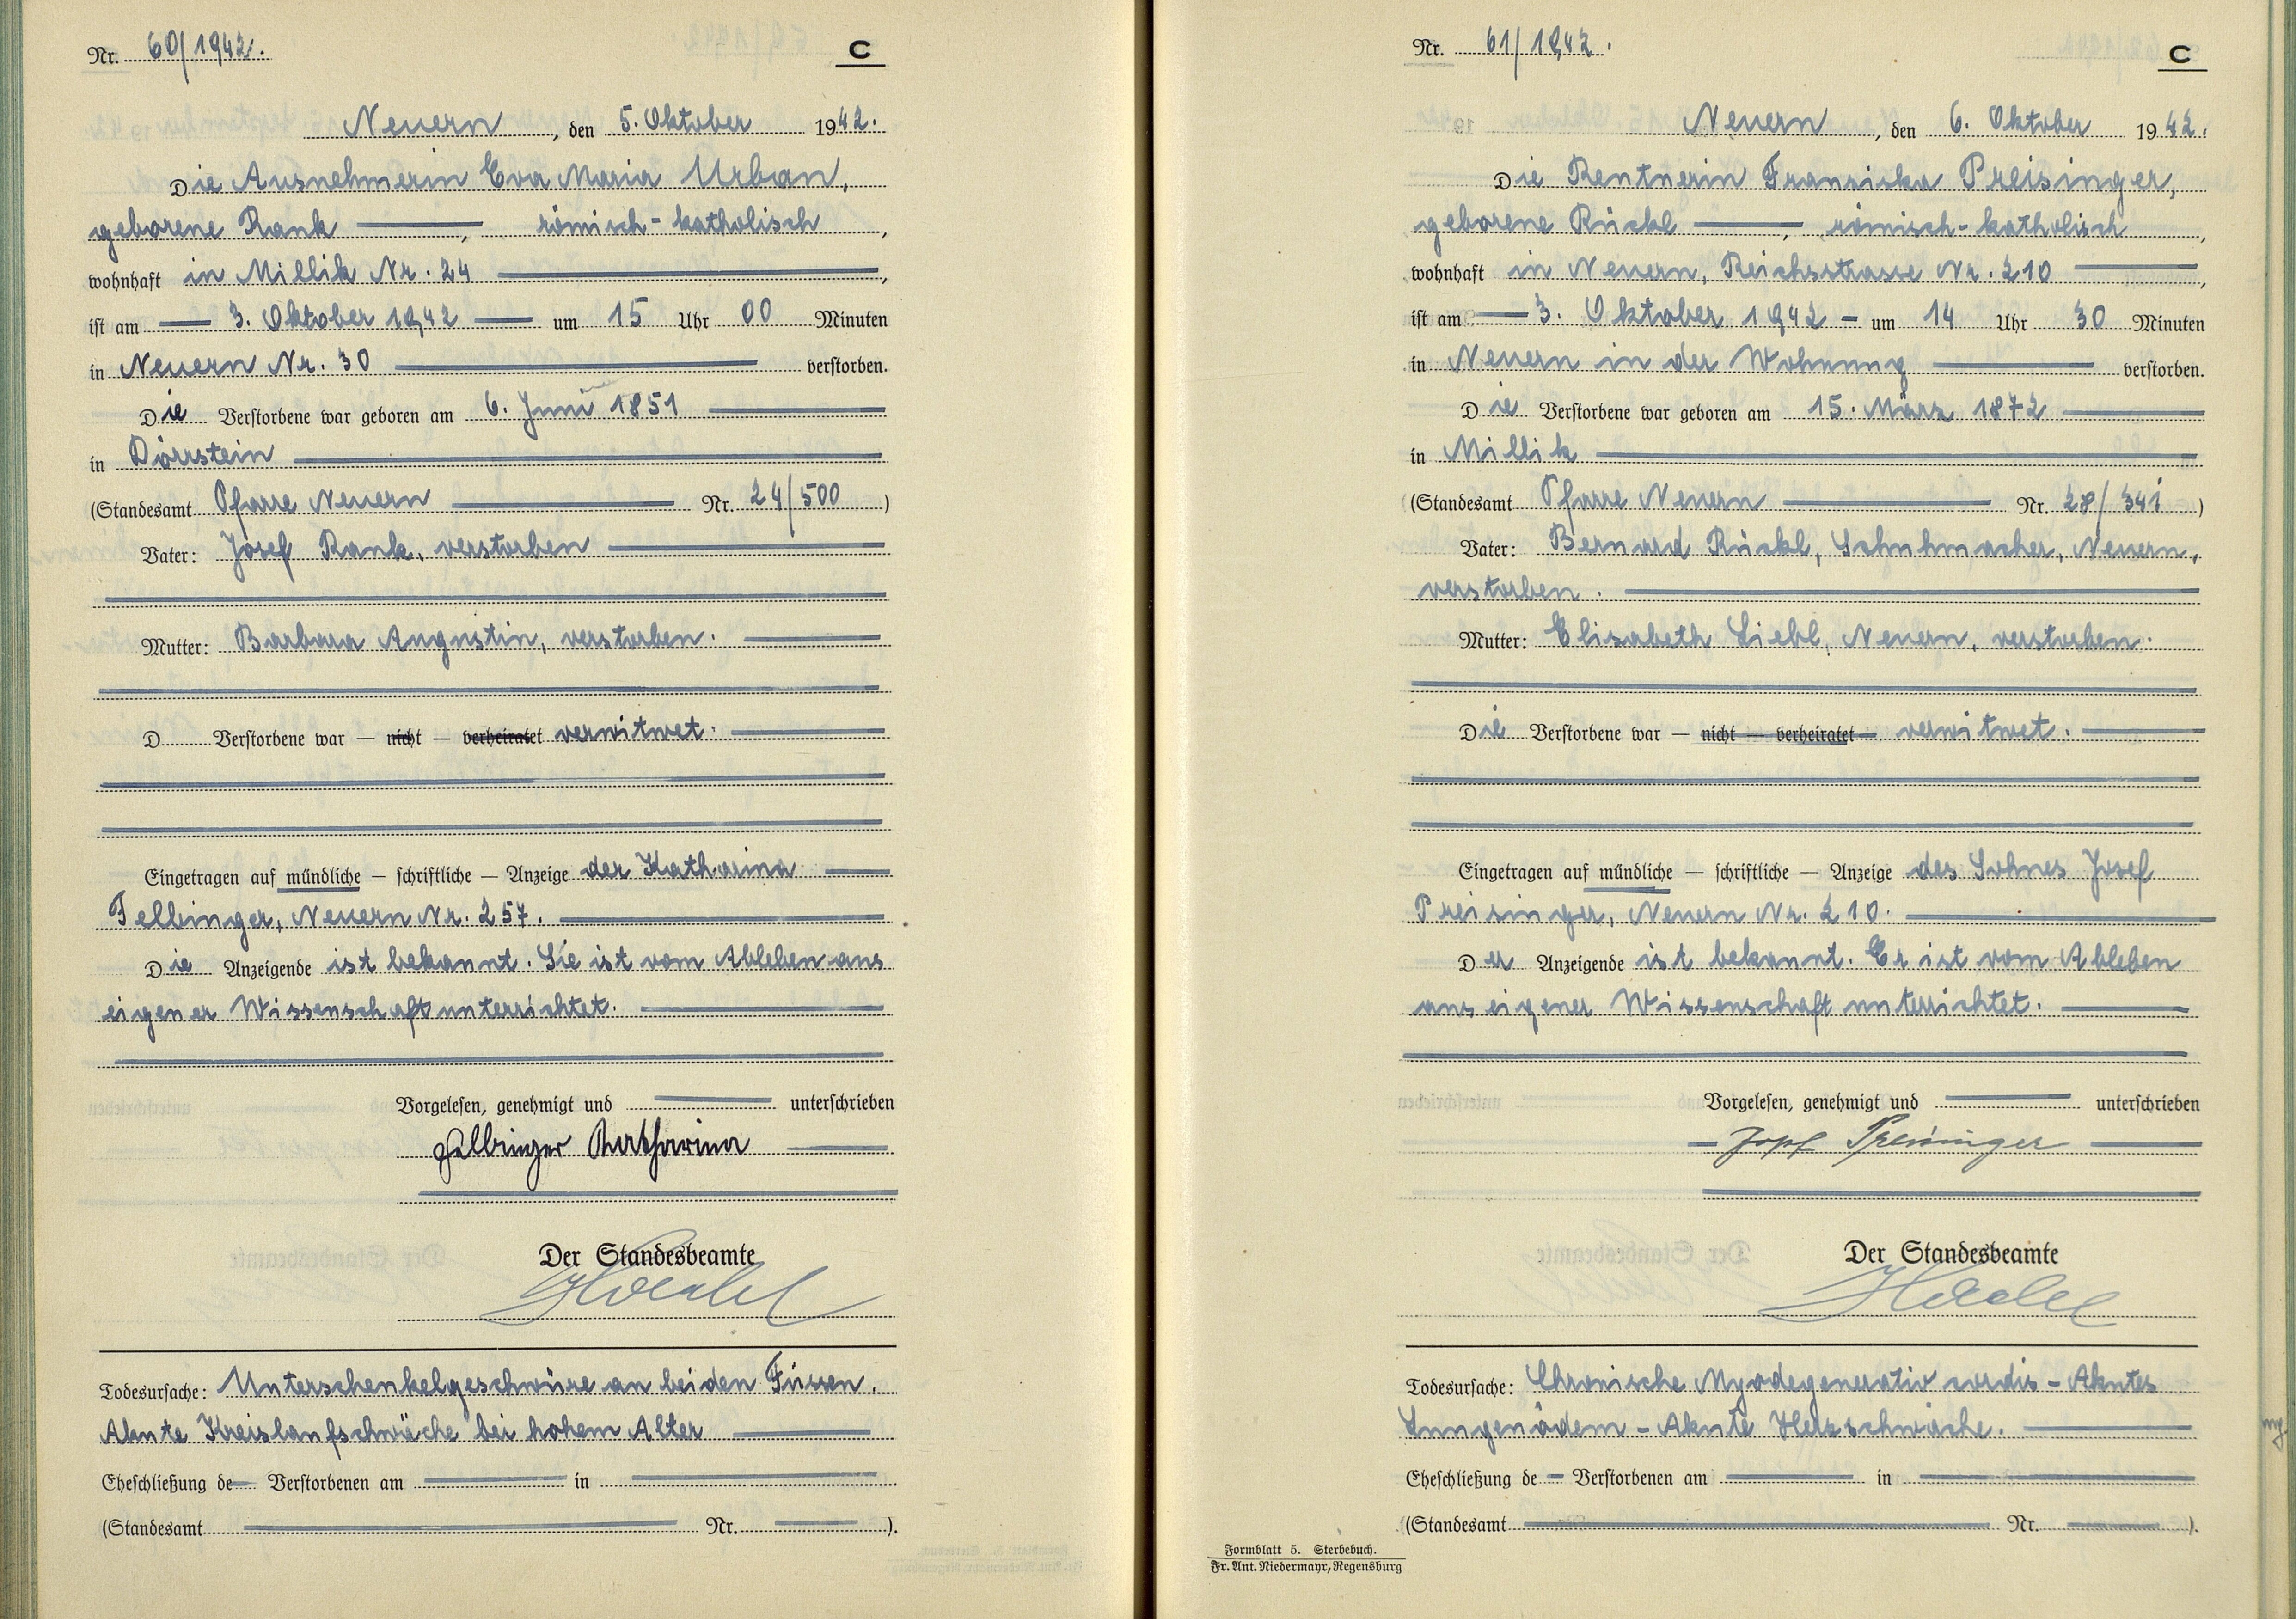 Nr. 60/1942.
C
Neuern, den 5. Oktober 1942.
Die Ausnehmerin Eva Maria Urban,
geborene Rank, römisch-katholisch,
wohnhaft in Millik Nr. 24,
ist am 3. Oktober 1942 um 15 Uhr 00 Minuten
in Neuern Nr. 30 verstorben.
Die Verstorbene war geboren am 6. Juni 1851
in Dörrstein
(Standesamt Pfarre Neuern Nr. 24/500)
Vater: Josef Rank, verstorben
Mutter: Barbara Augustin, verstorben.
D Verstorbene war — nicht — verheiratet verwitwet.
Eingetragen auf mündliche — schriftliche — Anzeige der Katharina
Felbinger, Neuern Nr. 257.
Die Anzeigende ist bekannt. Sie ist vom Ableben aus
eigener Wissenschaft unterrichtet.
Vorgelesen, genehmigt und unterschrieben
Felbinger Katharina
Der Standesbeamte
Todesursache: Unterschenkelgeschwüre an beiden Füssen.
Akute Kreislaufschwäche bei hohem Alter
Eheschließung de Verstorbenen am in
(Standesamt Nr. ).
Nr. 61/1942.
C
Neuern, den 6. Oktober 1942.
Die Rentnerin Franziska Preisinger,
geborene Rückl, römisch-katholisch,
wohnhaft in Neuern, Reichsstrasse Nr. 210,
ist am 3. Oktober 1942 – um 14 Uhr 30 Minuten
in Neuern in der Wohnung verstorben.
Die Verstorbene war geboren am 15. März 1872
in Millik
(Standesamt Pfarre Neuern Nr. 28/341)
Vater: Bernard Rückl, Schuhmacher, Neuern,
verstorben.
Mutter: Elisabeth Liebl, Neuern, verstorben.
Die Verstorbene war — nicht — verheiratet — verwitwet.
Eingetragen auf mündliche — schriftliche — Anzeige des Sohnes Josef
Preisinger, Neuern Nr. 210.
Der Anzeigende ist bekannt. Er ist vom Ableben
aus eigener Wissenschaft unterrichtet.
Vorgelesen, genehmigt und unterschrieben
Josef Preisinger
Der Standesbeamte
Todesursache: Chronische Myodegenerativ cordis – Akutes
Lungenödem – Akute Herzschwäche.
Eheschließung de Verstorbenen am in
(Standesamt Nr. ).
Formblatt 5. Sterbebuch.
Fr. Ant. Niedermayr, Regensburg